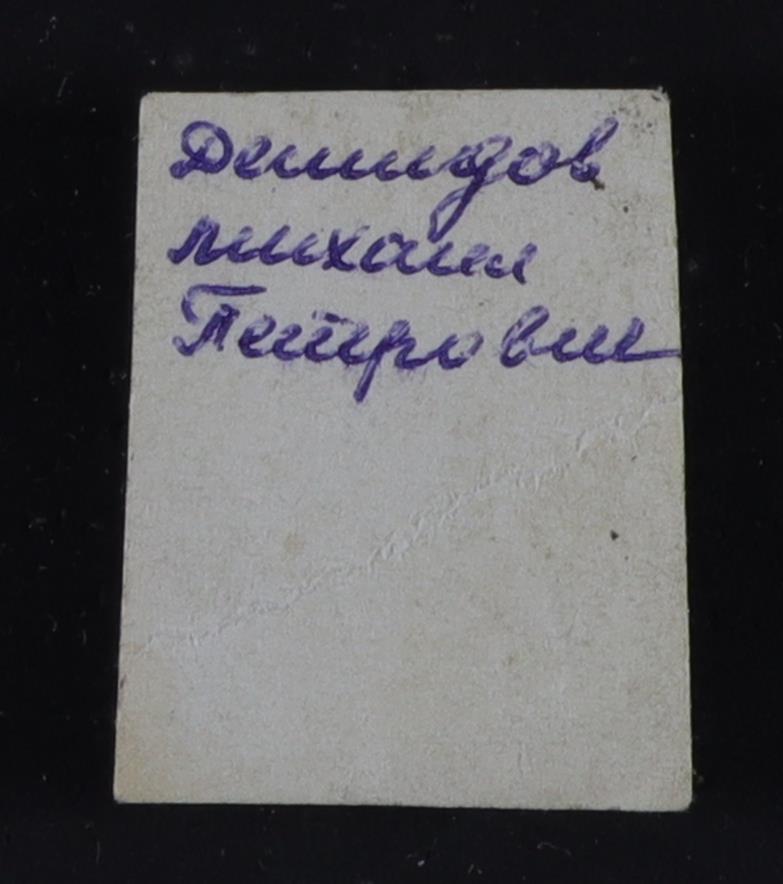 Демидов
михаил
Петрович